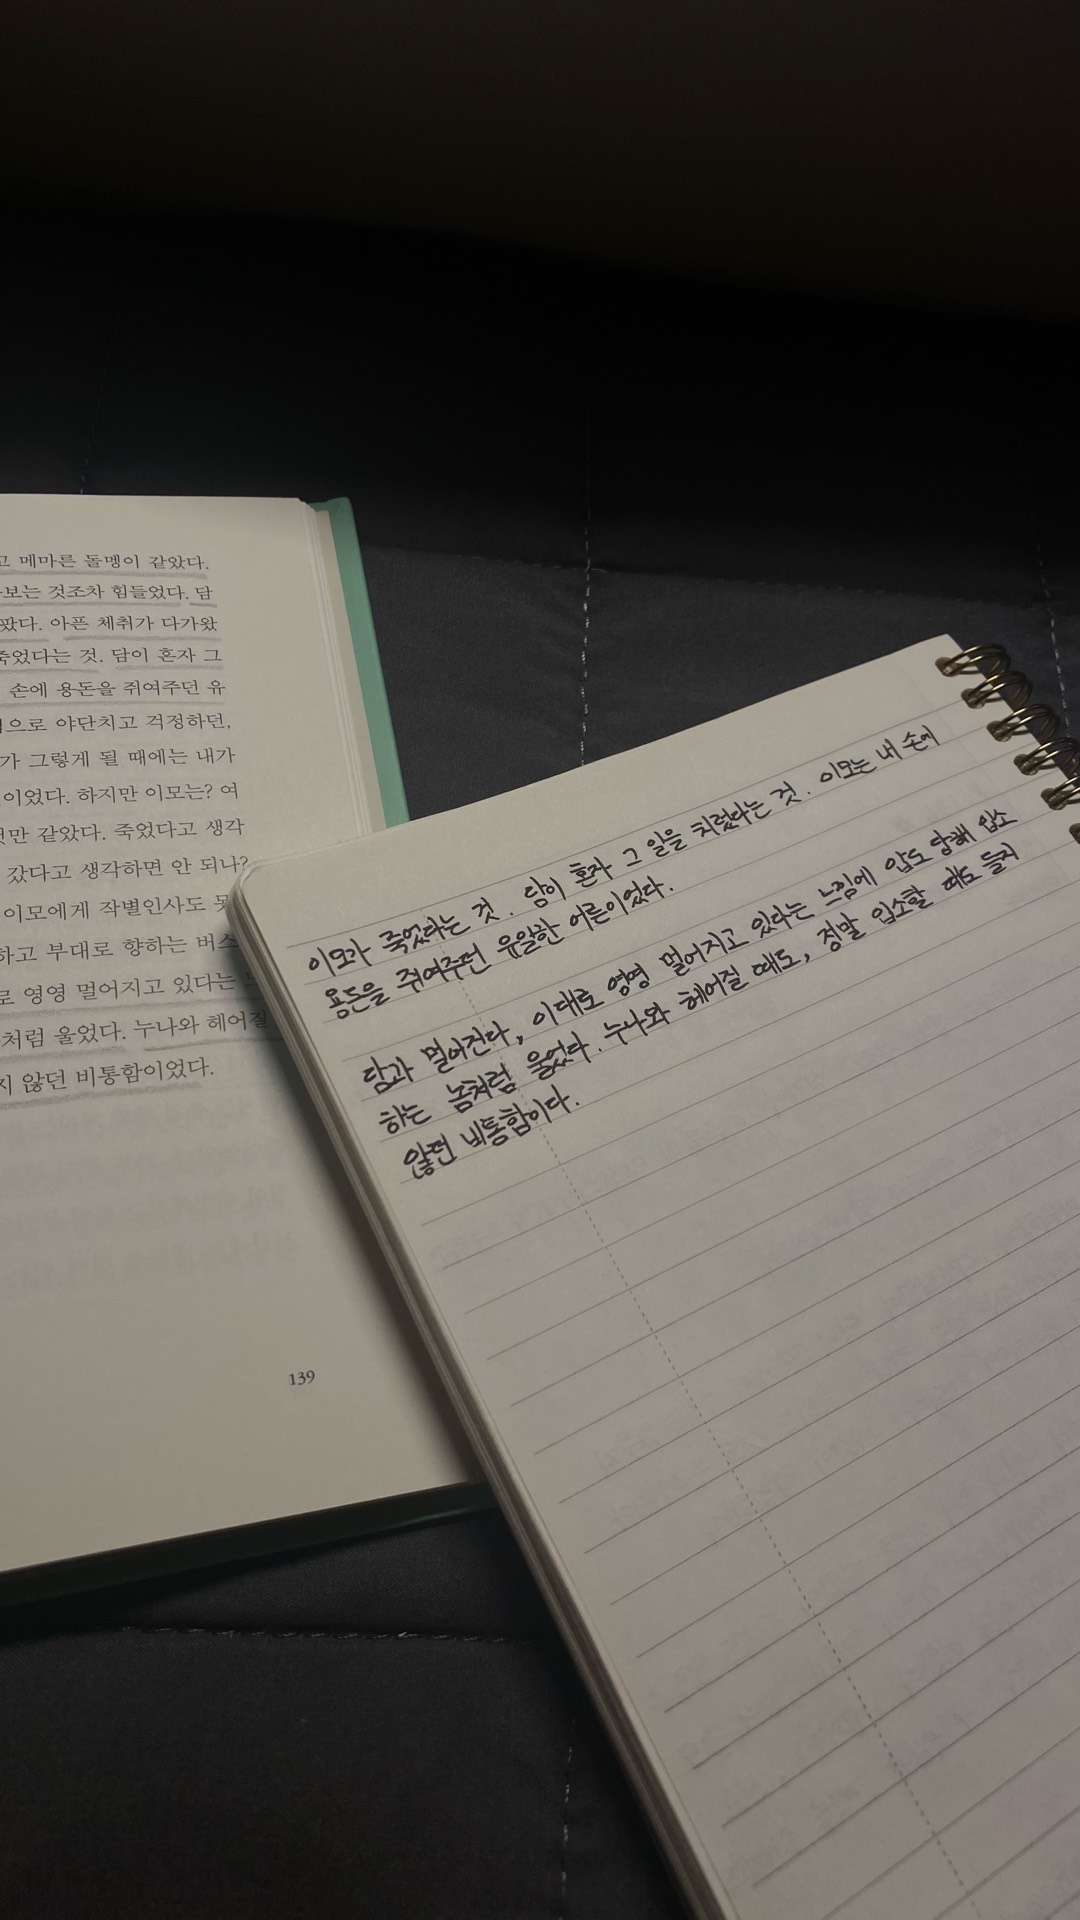 고 메마른 돌멩이 같았다.
보는 것조차 힘들었다. 담
팠다. 아픈 체취가 다가왔
죽었다는 것. 담이 혼자 그
손에 용돈을 쥐여주던 유
으로 야단치고 걱정하던,
가 그렇게 될 때에는 내가
이었다. 하지만 이모는? 여
것만 같았다. 죽었다고 생각
갔다고 생각하면 안 되나?
이모에게 작별인사도 못
하고 부대로 향하는 버스
로 영영 멀어지고 있다는
처럼 울었다. 누나와 헤어질
지 않던 비통함이었다.
139
이모가 죽었다는 것. 담이 혼자 그 일을 치렀다는 것. 이모는 내 손에
용돈을 쥐여주던 유일한 어른이었다.
담과 멀어진다, 이대로 영영 멀어지고 있다는 느낌에 압도당해 입소
하는 놈처럼 울었다. 누나와 헤어질 때도, 정말 입소할 때도 들지
않던 비통함이다.